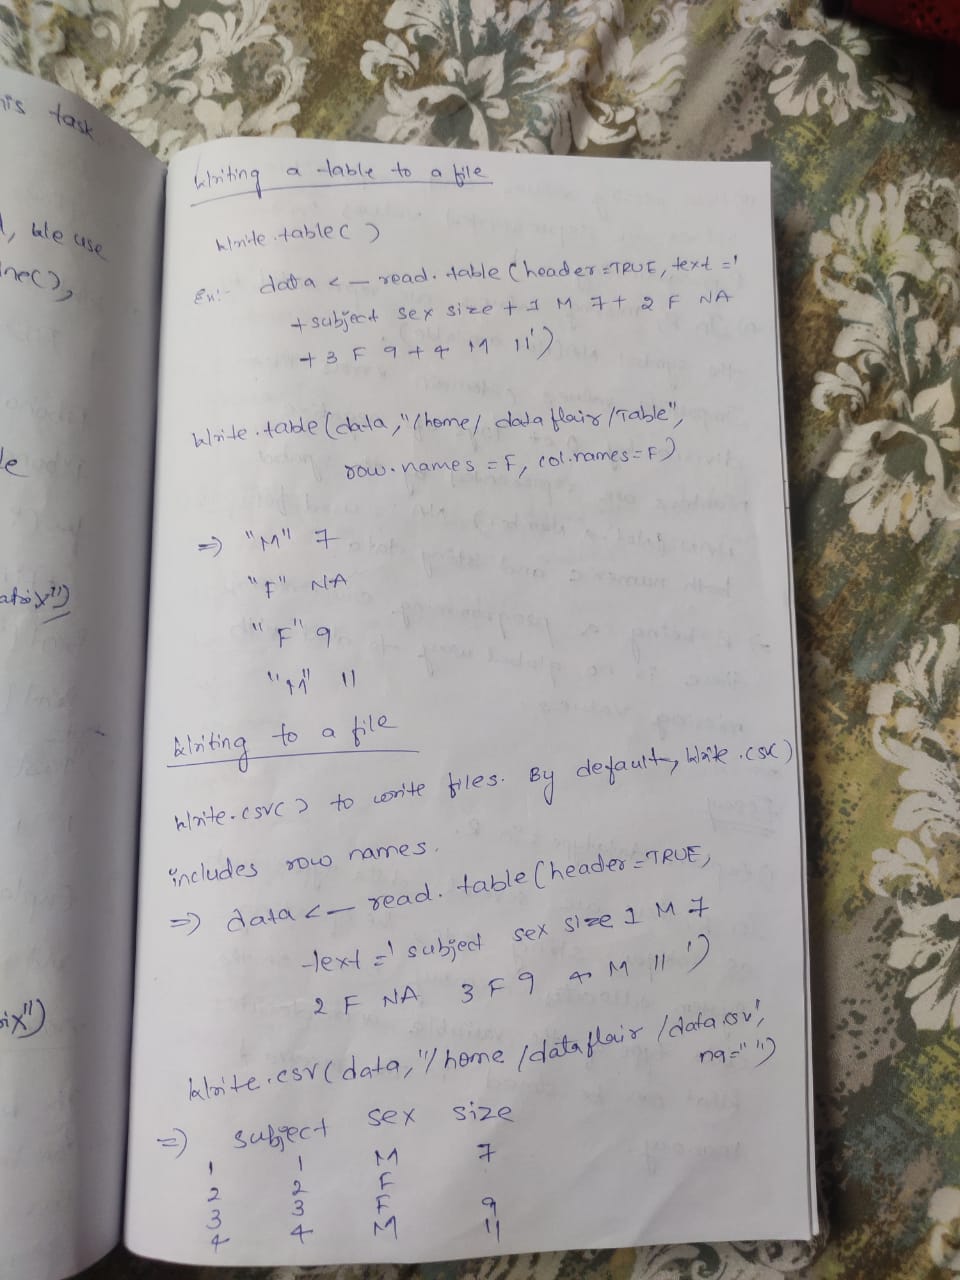 his task
, We use
ne(),
le
atrix")
rix")
Writing a table to a file
Write.table( )
Ex:- data <- read.table(header=TRUE, text='
+subject sex size + 1 M 7 + 2 F NA
+ 3 F 9 + 4 M 11')
Write.table(data,"/home/dataflair/Table",
row.names = F, col.names=F)
=> "M" 7
"F" NA
"F" 9
"M" 11
Writing to a file
Write.csv( ) to write files. By default, Write.csv( )
includes row names.
=> data <- read.table(header=TRUE,
text=' subject sex size 1 M 7
2 F NA 3 F 9 4 M 11')
Write.csv(data,"/home/dataflair/data.csv",
na="")
=> subject sex size
1 1 M 7
2 2 F
3 3 F 9
4 4 M 11